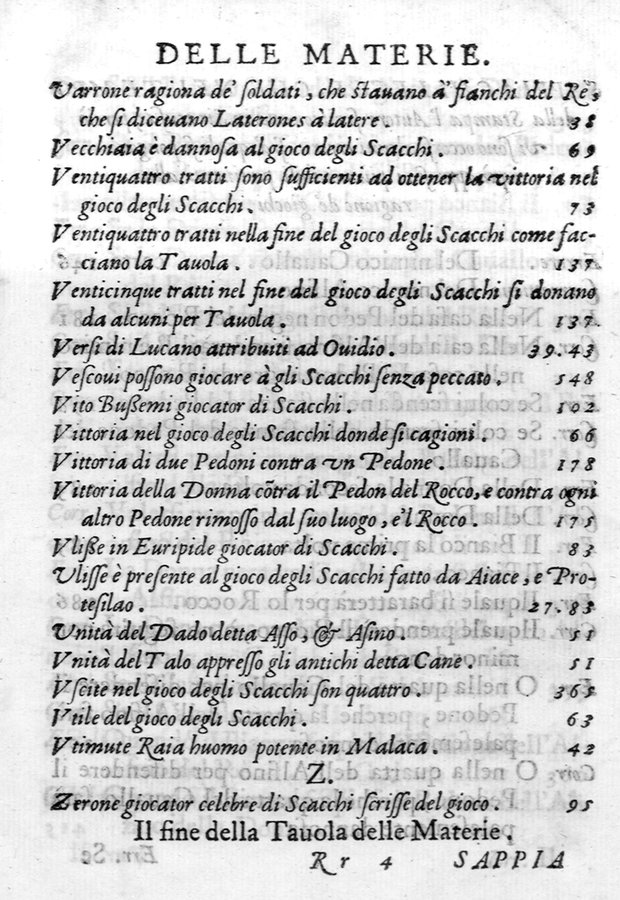 DELLE MATERIE.
Varrone ragiona de' soldati, che stauano a' fianchi del Re,
che si diceuano Laterones à latere. 38
Vecchiaia è dannosa al gioco degli Scacchi. 69
Ventiquattro tratti sono sufficienti ad ottener la vittoria nel
gioco degli Scacchi. 73
Ventiquattro tratti nella fine del gioco degli Scacchi come fac-
ciano la Tauola. 137
Venticinque tratti nel fine del gioco degli Scacchi si donano
da alcuni per Tauola. 137.
Versi di Lucano attribuiti ad Ouidio. 39.43
Vescoui possono giocare à gli Scacchi senza peccato. 548
Vito Bußemi giocator di Scacchi. 102
Vittoria nel gioco degli Scacchi donde si cagioni. 66
Vittoria di due Pedoni contra vn Pedone. 178
Vittoria della Donna cōtra il Pedon del Rocco, e contra ogni
altro Pedone rimosso dal suo luogo, e'l Rocco. 175
Vliße in Euripide giocator di Scacchi. 83
Vlisse è presente al gioco degli Scacchi fatto da Aiace, e Pro-
tesilao. 27.83
Vnità del Dado detta Asso, & Asino. 51
Vnità del Talo appresso gli antichi detta Cane. 51
Vscite nel gioco degli Scacchi son quattro. 365
Vtile del gioco degli Scacchi. 63
Vtimute Raia huomo potente in Malaca. 42
Z.
Zerone giocator celebre di Scacchi scrisse del gioco. 95
Il fine della Tauola delle Materie.
Rr 4 SAPPIA